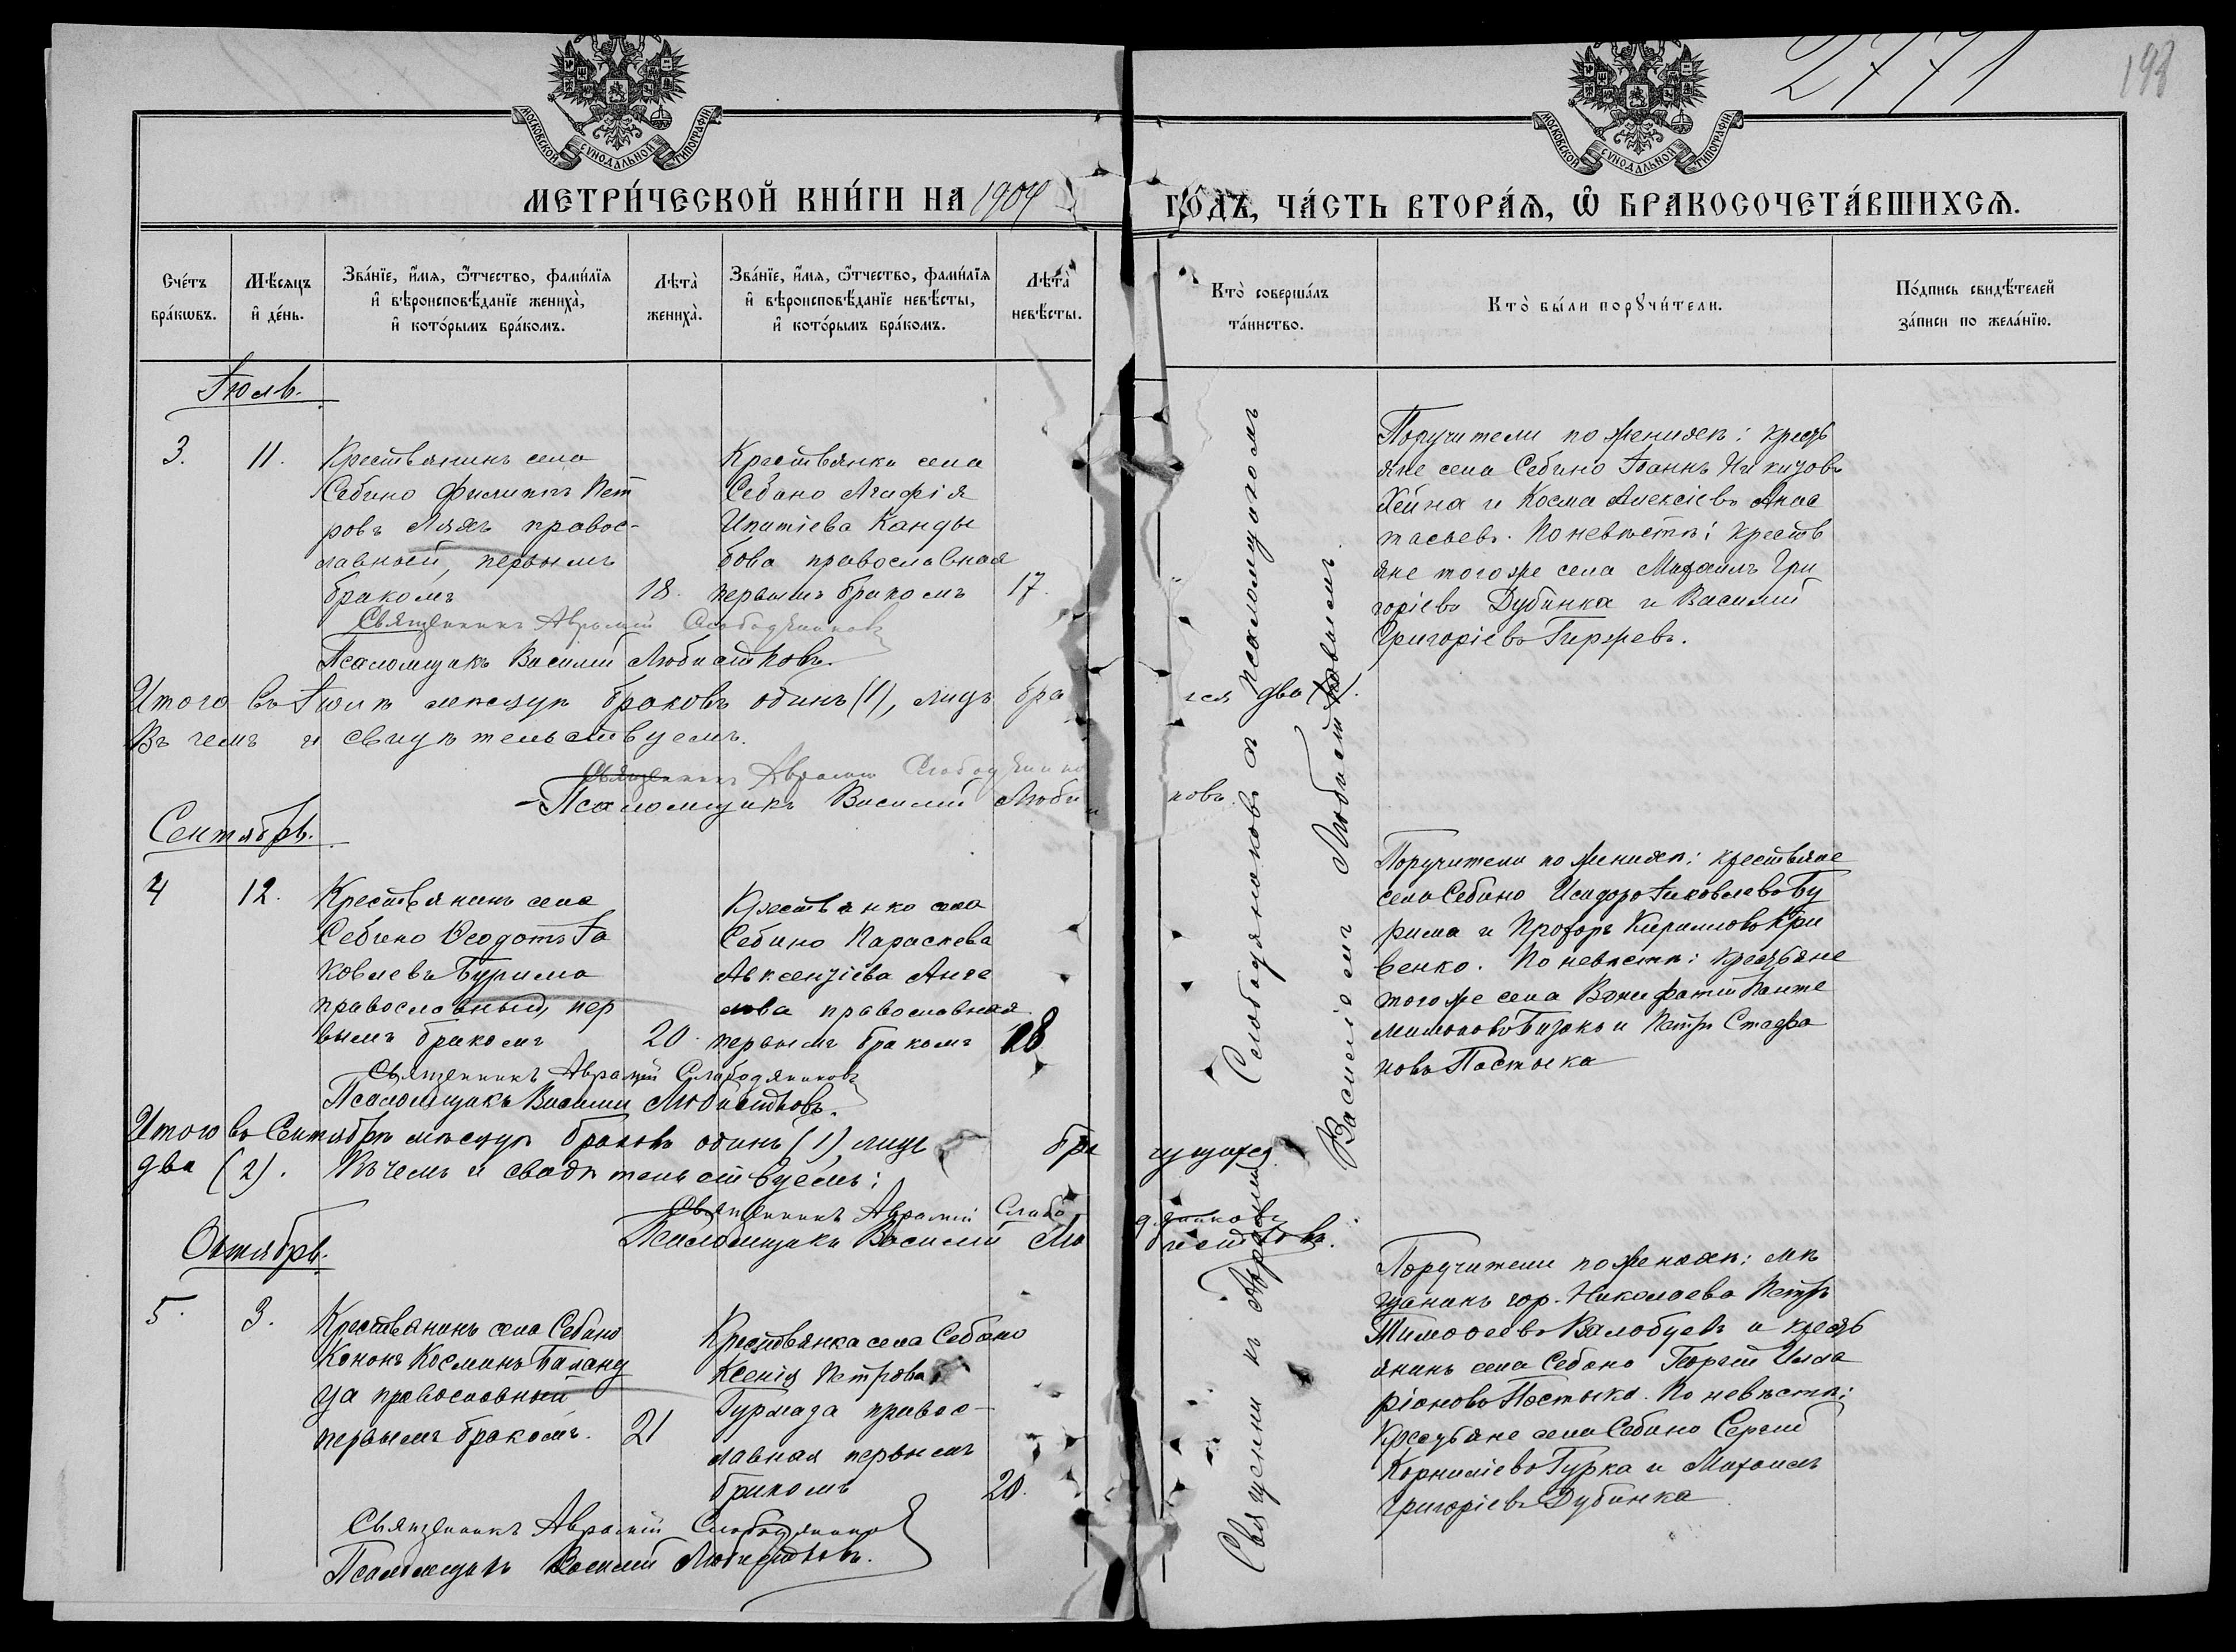 2771
198
МОСКОВСКОЙ СѴНОДАЛЬНОЙ ТИПОГРАФІИ
МОСКОВСКОЙ СѴНОДАЛЬНОЙ ТИПОГРАФІИ
МЕТРИ́ЧЕСКОЙ КНИ́ГИ НА 1904 ГО́ДЪ, ЧА́СТЬ ВТОРА́Ѧ, Ѽ БРАКОСОЧЕТА́ВШИХСѦ.
Сче́тъ
бра́кѡвъ.
Мѣ́сяцъ
и҆ де́нь.
Зва́нїе, и҆́мѧ, ѻ҆́тчество, фами́лїѧ
и҆ вѣроисповѣ́данїе жениха̀,
и҆ кото́рымъ бра́комъ.
Лѣта̀
жениха̀.
Зва́нїе, и҆́мѧ, ѻ҆́тчество, фами́лїѧ
и҆ вѣроисповѣ́данїе невѣ́сты,
и҆ кото́рымъ бра́комъ.
Лѣта̀
невѣ́сты.
Кто̀ соверша́лъ
та́инство.
Кто̀ бы́ли порꙋчи́тели.
По́дпись свидѣ́телей
за́писи по жела́нїю.
Іюль.
3.
11.
Крестьянинъ села
Себино Филиппъ Пет
ровъ Ляхъ правос-
лавный, первымъ
бракомъ
18.
Крестьянка села
Себино Агафія
Ипатіева Канды
бова православная
первымъ бракомъ
17.
Поручители по женихѣ: кресть
яне села Себино Іоаннъ
Хейна и Косма Алексіевъ Анас
тасьевъ. По невѣстѣ: крестья
яне того же села Михаилъ Гри
горіевъ Дубинка и Василій
Григоріевъ Гиржевъ.
Священникъ Аврамій Слободяниковъ
Псаломщикъ Василій Любистковъ.
Итого въ Іюлѣ мѣсяцѣ браковъ одинъ (1), лицъ два (2).
Въ чемъ и свидѣтельствуемъ.
Священникъ Аврамій
Псаломщикъ Василій
Сентябрь.
4
12.
Крестьянинъ села
Себино Ѳеодотъ Іа
ковлевъ Бурима
православный, пер
вымъ бракомъ
20.
Крестьянка села
Себино Параскева
Авксентіева Анге
лова православная
первымъ бракомъ
18
Поручители по женихѣ: крестьяне
села Себино Исидоръ Іаковлевъ Бу
рима и Прохоръ Кирилловъ Кри
венко. По невѣстѣ: крестьяне
того же села Вонифатій Панте
лимоновъ и Петръ Стефа
новъ Постыка
Священникъ Аврамій Слободяниковъ
Псаломщикъ Василій Любистковъ.
Итого въ Сентябрѣ мѣсяцѣ браковъ одинъ (1), лицъ
два (2). Въ чемъ и свидѣтельствуемъ:
Священникъ Аврамій Слободяниковъ
Псаломщикъ Василій Любистковъ.
Октябрь.
5.
3.
Крестьянинъ села Себино
Кононъ Косминъ Баланд
да православный
первымъ бракомъ.
21
Крестьянка села Себино
Ксенія Петрова
Гурмаза правос-
лавная первымъ
бракомъ
20.
Поручители по женихѣ: мѣ
щанинъ гор. Николаева Петръ
Тимоѳеевъ и кресть
янинъ села Себино Георгій Илла
ріоновъ Постыка. По невѣстѣ:
Крестьяне села Себино Сергій
Корниліевъ Гурка и Михаилъ
Григоріевъ Дубинка
Священникъ Аврамій Слободяниковъ
Псаломщикъ Василій Любистковъ.
Священникъ Аврамій Слободяниковъ съ псаломщикомъ
Василіемъ Любистковымъ.